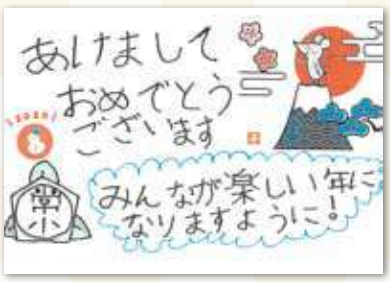 あけまして
おめでとう
ございます
2020
みんなが楽しい年に
なりますように!